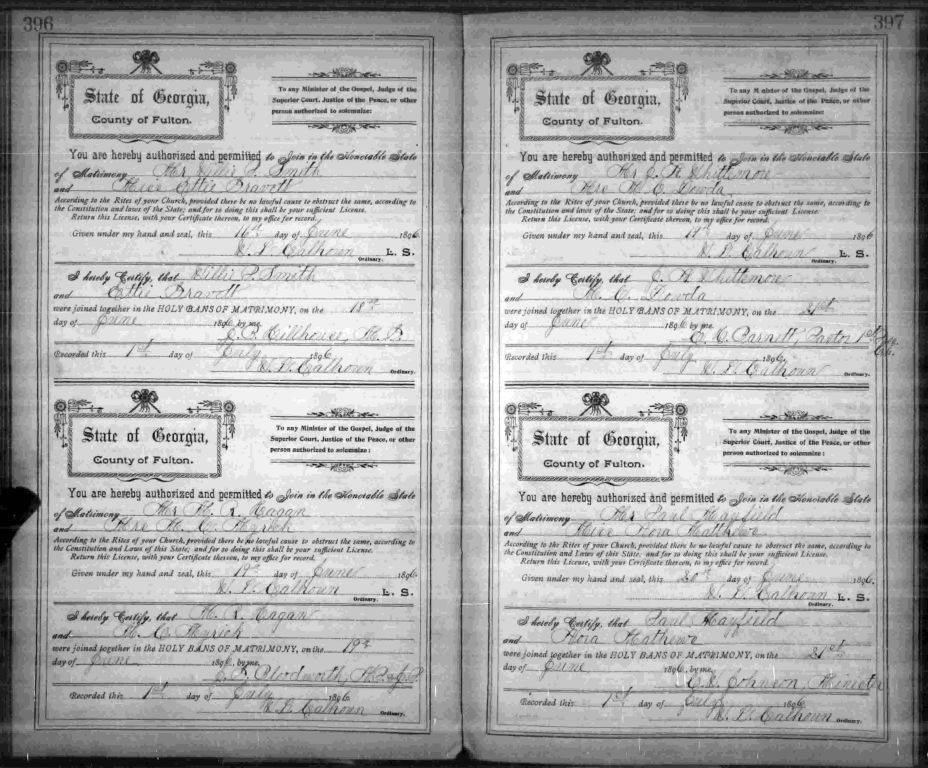 396
State of Georgia,
County of Fulton.
To any Minister of the Gospel, Judge of the
Superior Court, Justice of the Peace, or other
person authorized to solemnize:
You are hereby authorized and permitted to Join in the Honorable State
of Matrimony Mr Willie P. Smith
and Miss Ettie
According to the Rites of your Church, provided there be no lawful cause to obstruct the same, according to the
Constitution and laws of the State; and for so doing this shall be your sufficient License.
Return this License, with your Certificate thereon, to my office for record.
Given under my hand and seal, this 16th day of June 1896
Calhoun L. S.
Ordinary.
I hereby Certify, that Willie P. Smith
and Ettie
were joined together in the HOLY BANS OF MATRIMONY, on the 18th
day of June 1896, by me,
Recorded this 1st day of July 1896
Calhoun Ordinary.
State of Georgia,
County of Fulton.
To any Minister of the Gospel, Judge of the
Superior Court, Justice of the Peace, or other
person authorized to solemnize:
You are hereby authorized and permitted to Join in the Honorable State
of Matrimony Mr H. R.
and M. C.
According to the Rites of your Church, provided there be no lawful cause to obstruct the same, according to
the Constitution and Laws of this State; and for so doing this shall be your sufficient License.
Return this License, with your Certificate thereon, to my office for record.
Given under my hand and seal, this 19th day of June 1896
Calhoun L. S.
Ordinary.
I hereby Certify, that H. R.
and M. C. Myrick
were joined together in the HOLY BANS OF MATRIMONY, on the 19th
day of June 1896, by me,
Clodworth,
Recorded this 1st day of July 1896
Calhoun Ordinary.
397
State of Georgia,
County of Fulton.
To any Minister of the Gospel, Judge of the
Superior Court, Justice of the Peace, or other
person authorized to solemnize:
You are hereby authorized and permitted to Join in the Honorable State
of Matrimony Mr J. H. Whittemore
and M. C. Dowda
According to the Rites of your Church, provided there be no lawful cause to obstruct the same, according to
the Constitution and laws of this State; and for so doing this shall be your sufficient License.
Return this License, with your Certificate thereon, to my office for record.
Given under my hand and seal, this day of June 1896
Calhoun L. S.
Ordinary.
I hereby Certify, that J. H. Whittemore
and M. C. Dowda
were joined together in the HOLY BANS OF MATRIMONY, on the 21st
day of June 1896 by me,
Pastor 1st
Recorded this 1st day of July 1896
Calhoun Ordinary.
State of Georgia,
County of Fulton.
To any Minister of the Gospel, Judge of the
Superior Court, Justice of the Peace, or other
person authorized to solemnize:
You are hereby authorized and permitted to Join in the Honorable State
of Matrimony Mr Paul Mayfield
and Miss Nora Mathews
According to the Rites of your Church, provided there be no lawful cause to obstruct the same, according to
the Constitution and Laws of this State; and for so doing this shall be your sufficient License.
Return this License, with your Certificate thereon, to my office for record.
Given under my hand and seal, this 20th day of June 1896.
Calhoun L. S.
Ordinary.
I hereby Certify, that Paul Mayfield
and Nora Mathews
were joined together in the HOLY BANS OF MATRIMONY, on the 21st
day of June 1896, by me,
Johnson, Minister
Recorded this 1st day of July 1896
Calhoun Ordinary.